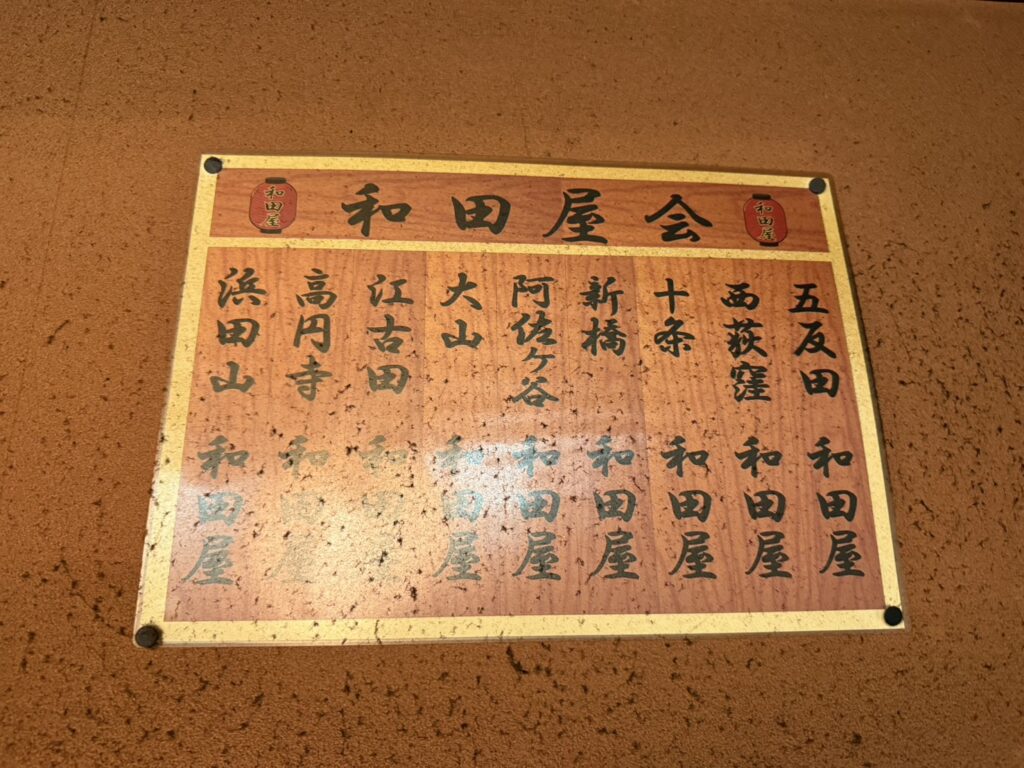 和田屋会
和田屋
和田屋
五反田 和田屋
西荻窪 和田屋
十条 和田屋
新橋 和田屋
阿佐ヶ谷 和田屋
大山 和田屋
江古田 和田屋
高円寺 和田屋
浜田山 和田屋